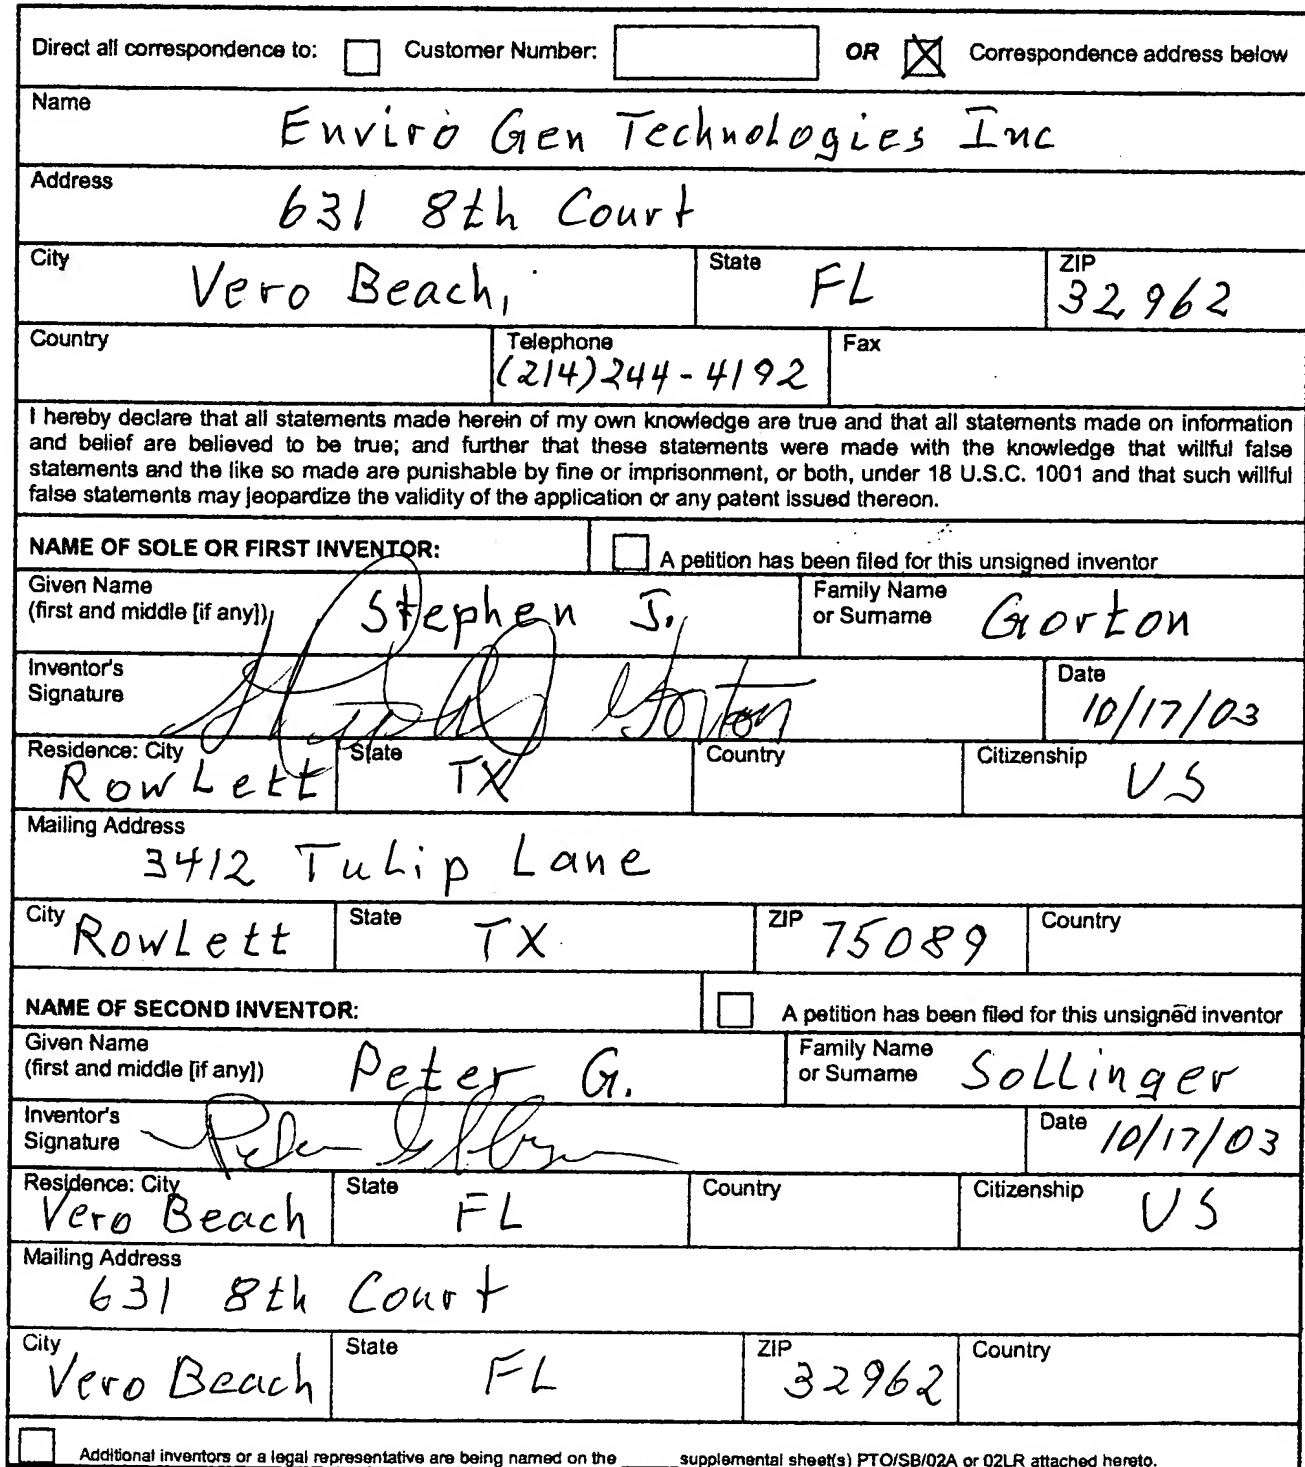 Direct all correspondence to: Customer Number: OR Correspondence address below
Name
Enviro Gen Technologies Inc
Address
631 8th Court
City State ZIP
Vero Beach, FL 32962
Country Telephone Fax
(214)244-4192
I hereby declare that all statements made herein of my own knowledge are true and that all statements made on information
and belief are believed to be true; and further that these statements were made with the knowledge that willful false
statements and the like so made are punishable by fine or imprisonment, or both, under 18 U.S.C. 1001 and that such willful
false statements may jeopardize the validity of the application or any patent issued thereon.
NAME OF SOLE OR FIRST INVENTOR: A petition has been filed for this unsigned inventor
Given Name Family Name
(first and middle [if any]) Stephen J. or Surname Gorton
Inventor's Date
Signature Gorton 10/17/03
Residence: City State Country Citizenship
RowLett TX US
Mailing Address
3412 TuLip Lane
City RowLett State TX ZIP 75089 Country
NAME OF SECOND INVENTOR: A petition has been filed for this unsigned inventor
Given Name Family Name
(first and middle [if any]) Peter G. or Surname SoLLinger
Inventor's Date 10/17/03
Signature Peter G
Residence: City State Country Citizenship
Vero Beach FL US
Mailing Address
631 8th Court
City State ZIP Country
Vero Beach FL 32962
Additional inventors or a legal representative are being named on the _____ supplemental sheet(s) PTO/SB/02A or 02LR attached hereto.